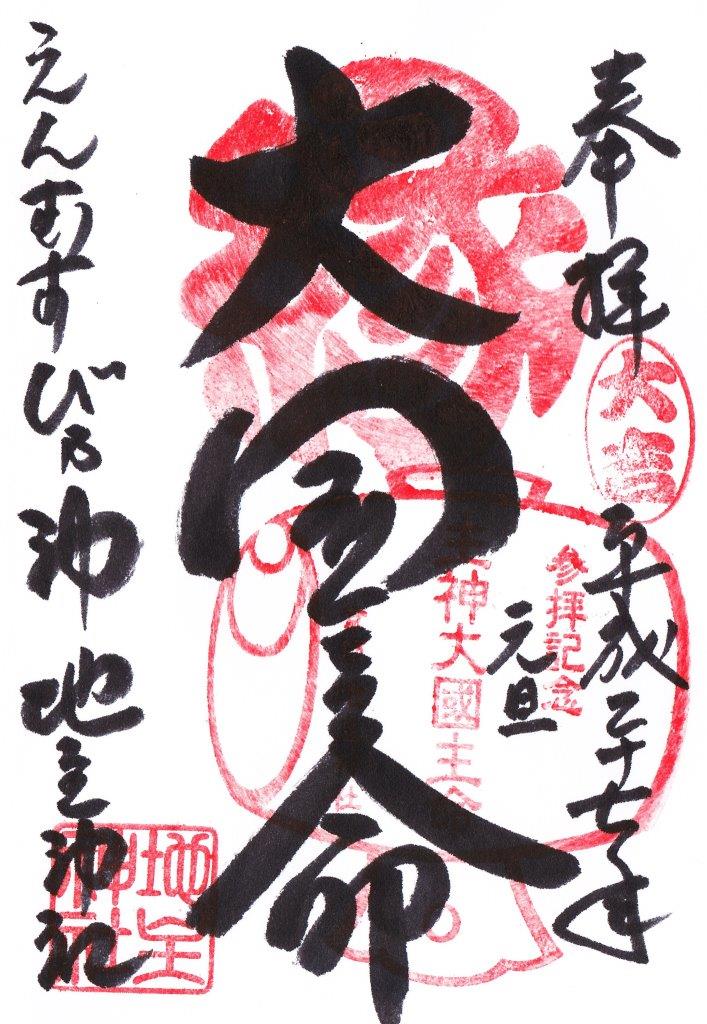 奉拝
大吉
平成二十七年
元旦
参拝記念
主神大國主命
大国主命
縁
えんむすび乃神 地主神社
地主神社